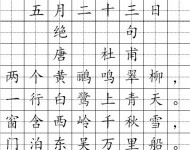 五月二十三日
绝句
唐 杜甫
两个黄鹂鸣翠柳，
一行白鹭上青天。
窗含西岭千秋雪，
门泊东吴万里船。